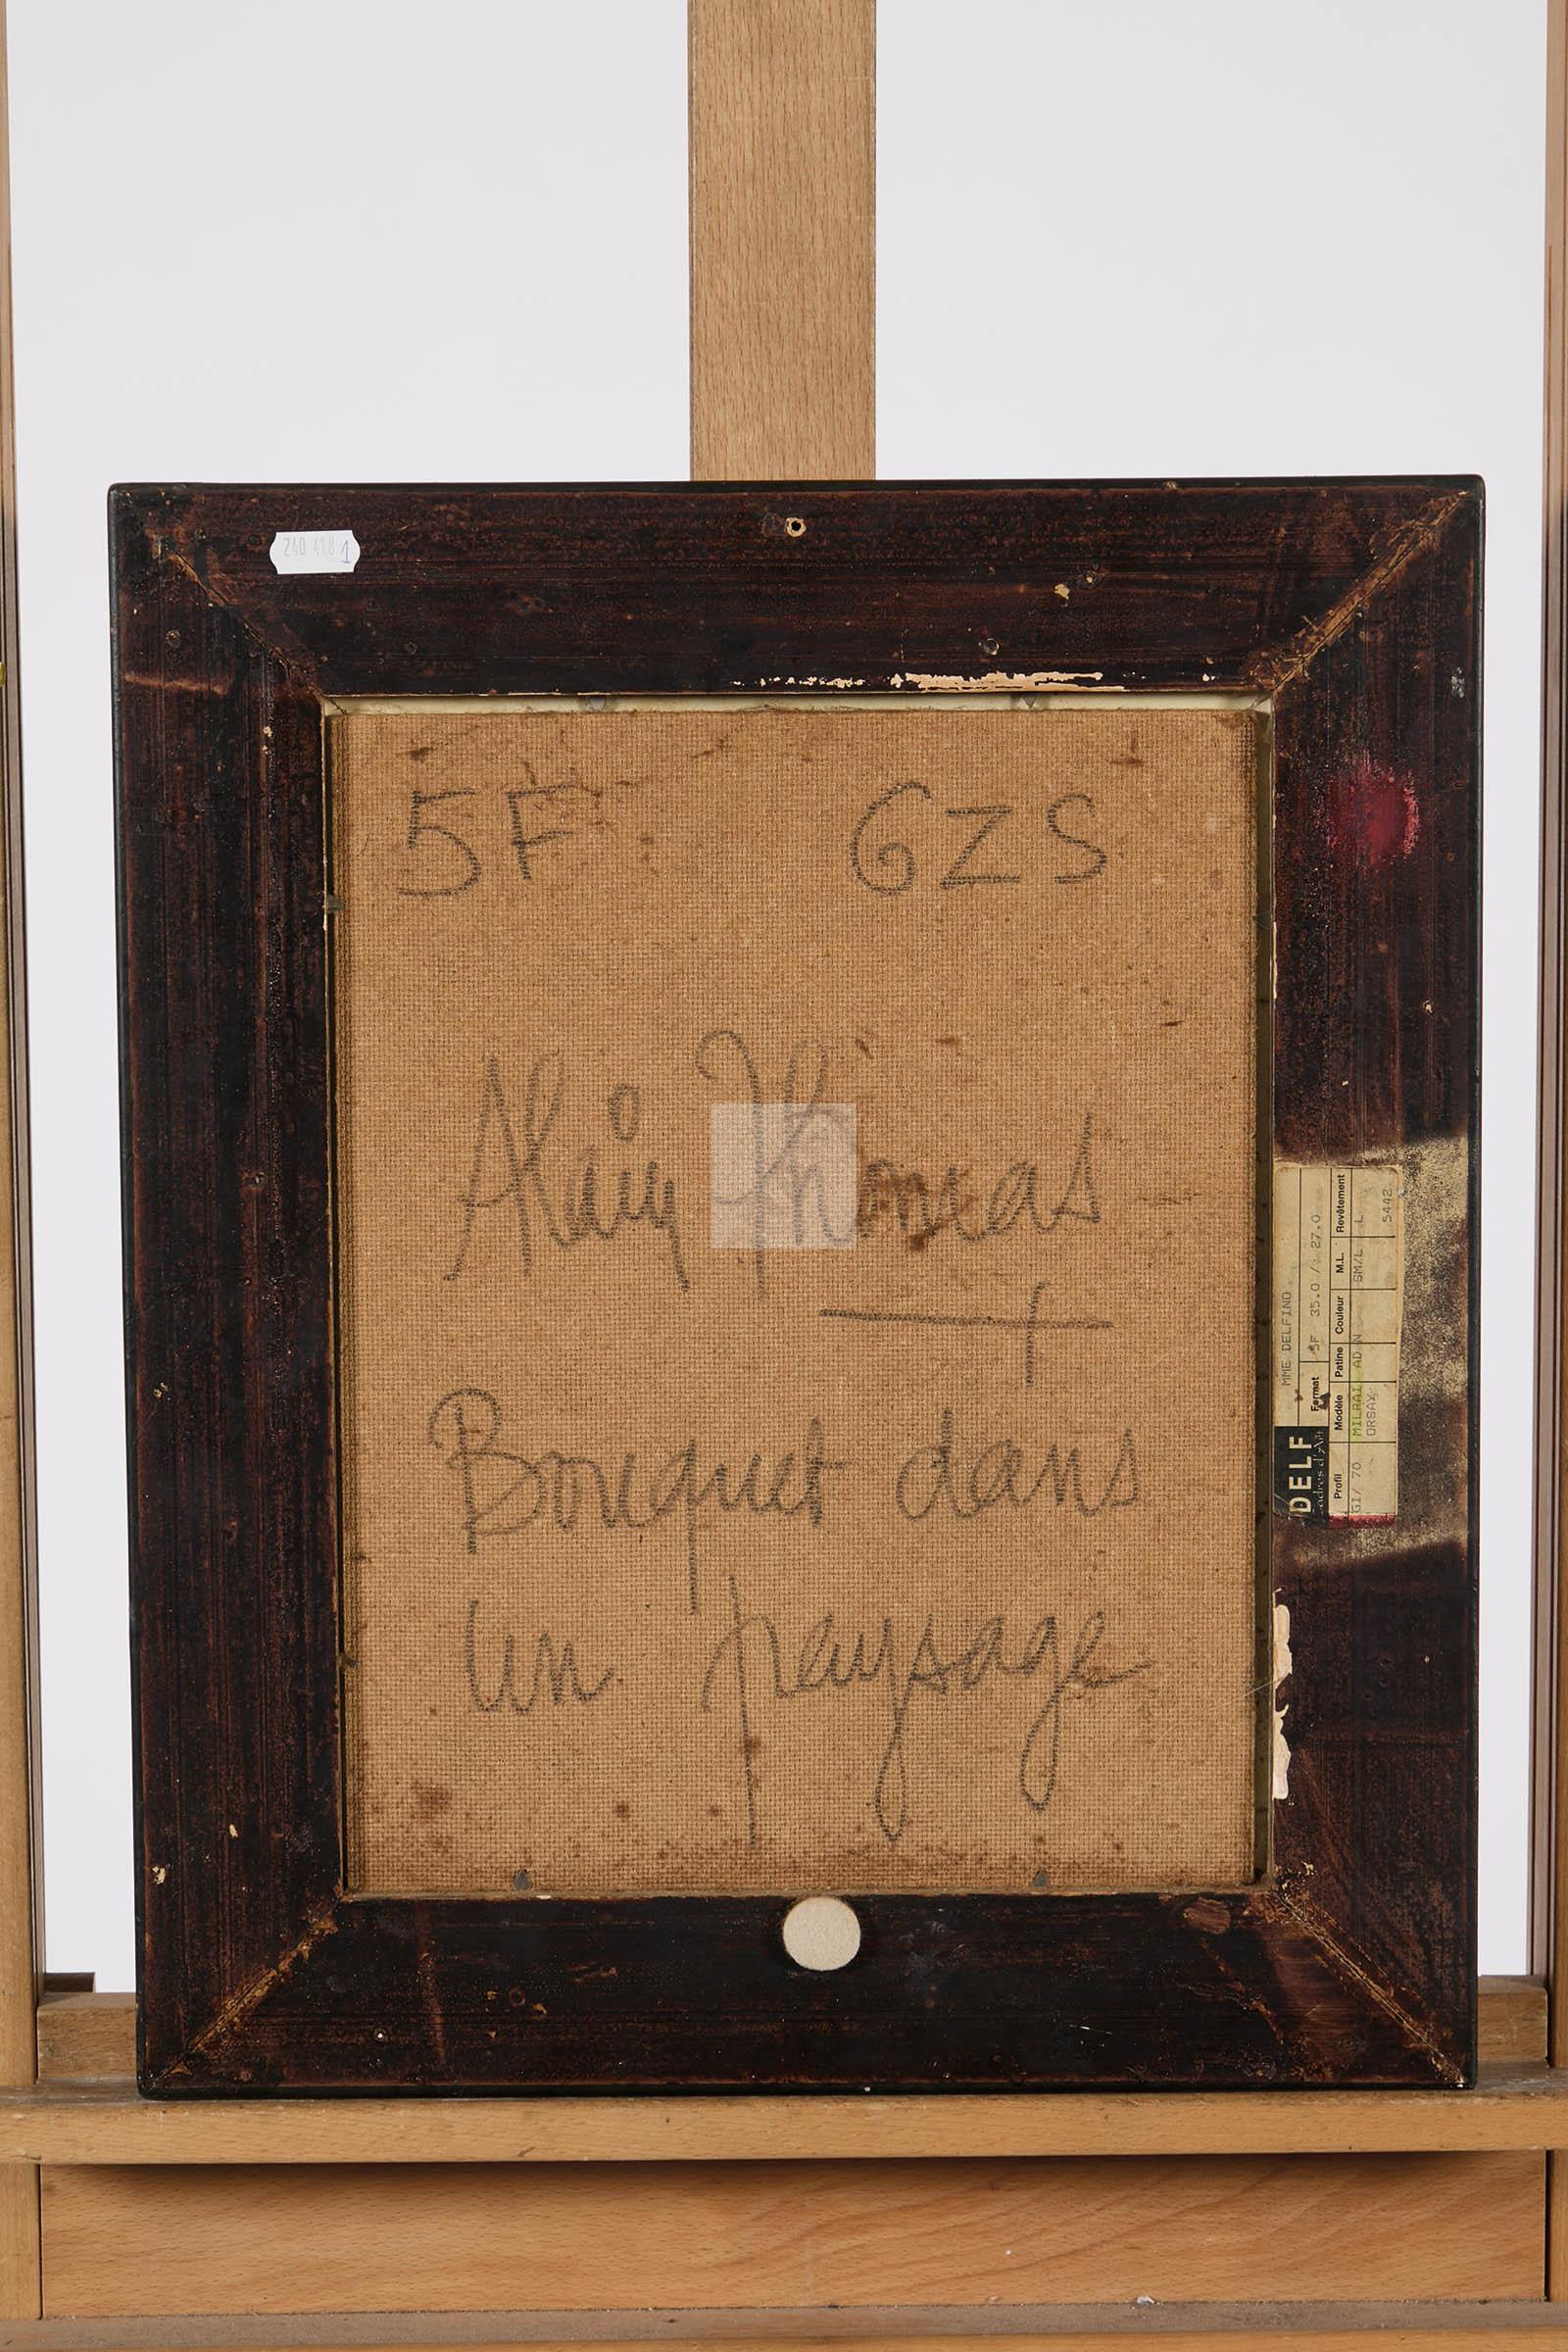 240 418 1
5F GZS
Alain Thomas
Bouquet dans
un paysage
DELF
MME DELFINO
Format 5F 35.0 / 27.0
Profil Modèle Patine Couleur M.L. Revêtement
GI/ 70 MILRAI AD N SM/L L
ORSAY 5442